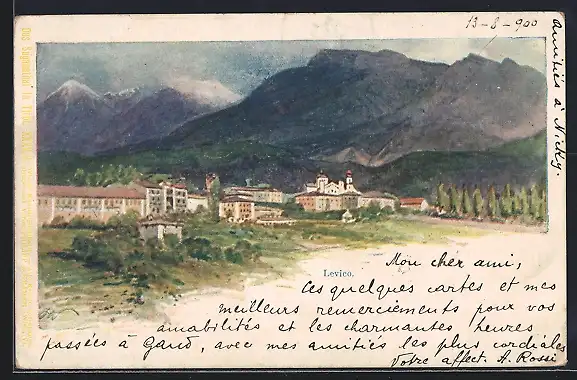 13-8-900
Amitiés à Nicky.
Levico.
Mon cher ami,
Ces quelques cartes et mes
meilleurs remerciements pour vos
amabilités et les charmantes heures
passées à Gand, avec mes amitiés les plus cordiales
Votre affect. A. Rossi